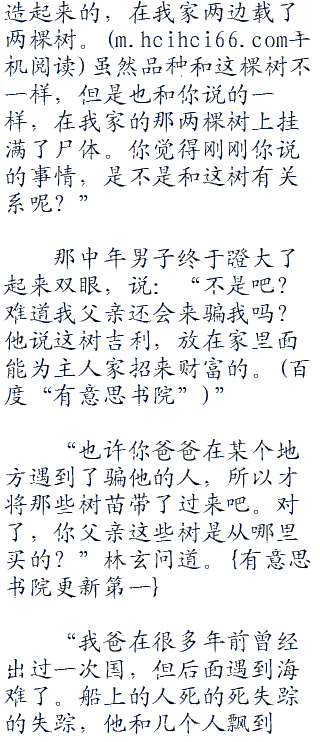 造起来的，在我家两边载了
两棵树。(m.hcihci66.com手
机阅读)虽然品种和这棵树不
一样，但是也和你说的一
样，在我家的那两棵树上挂
满了尸体。你觉得刚刚你说
的事情，是不是和这树有关
系呢？”
那中年男子终于瞪大了
起来双眼，说：“不是吧？
难道我父亲还会来骗我吗？
他说这树吉利，放在家里面
能为主人家招来财富的。(百
度“有意思书院”)”
“也许你爸爸在某个地
方遇到了骗他的人，所以才
将那些树苗带了过来吧。对
了，你父亲这些树是从哪里
买的？”林玄问道。{有意思
书院更新第一}
“我爸在很多年前曾经
出过一次国，但后面遇到海
难了。船上的人死的死失踪
的失踪，他和几个人飘到